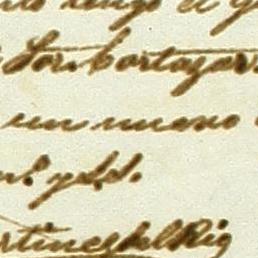 tengo el g
Sor. Cortazar.
un nuevo
y S.S.
rtinez del Rio